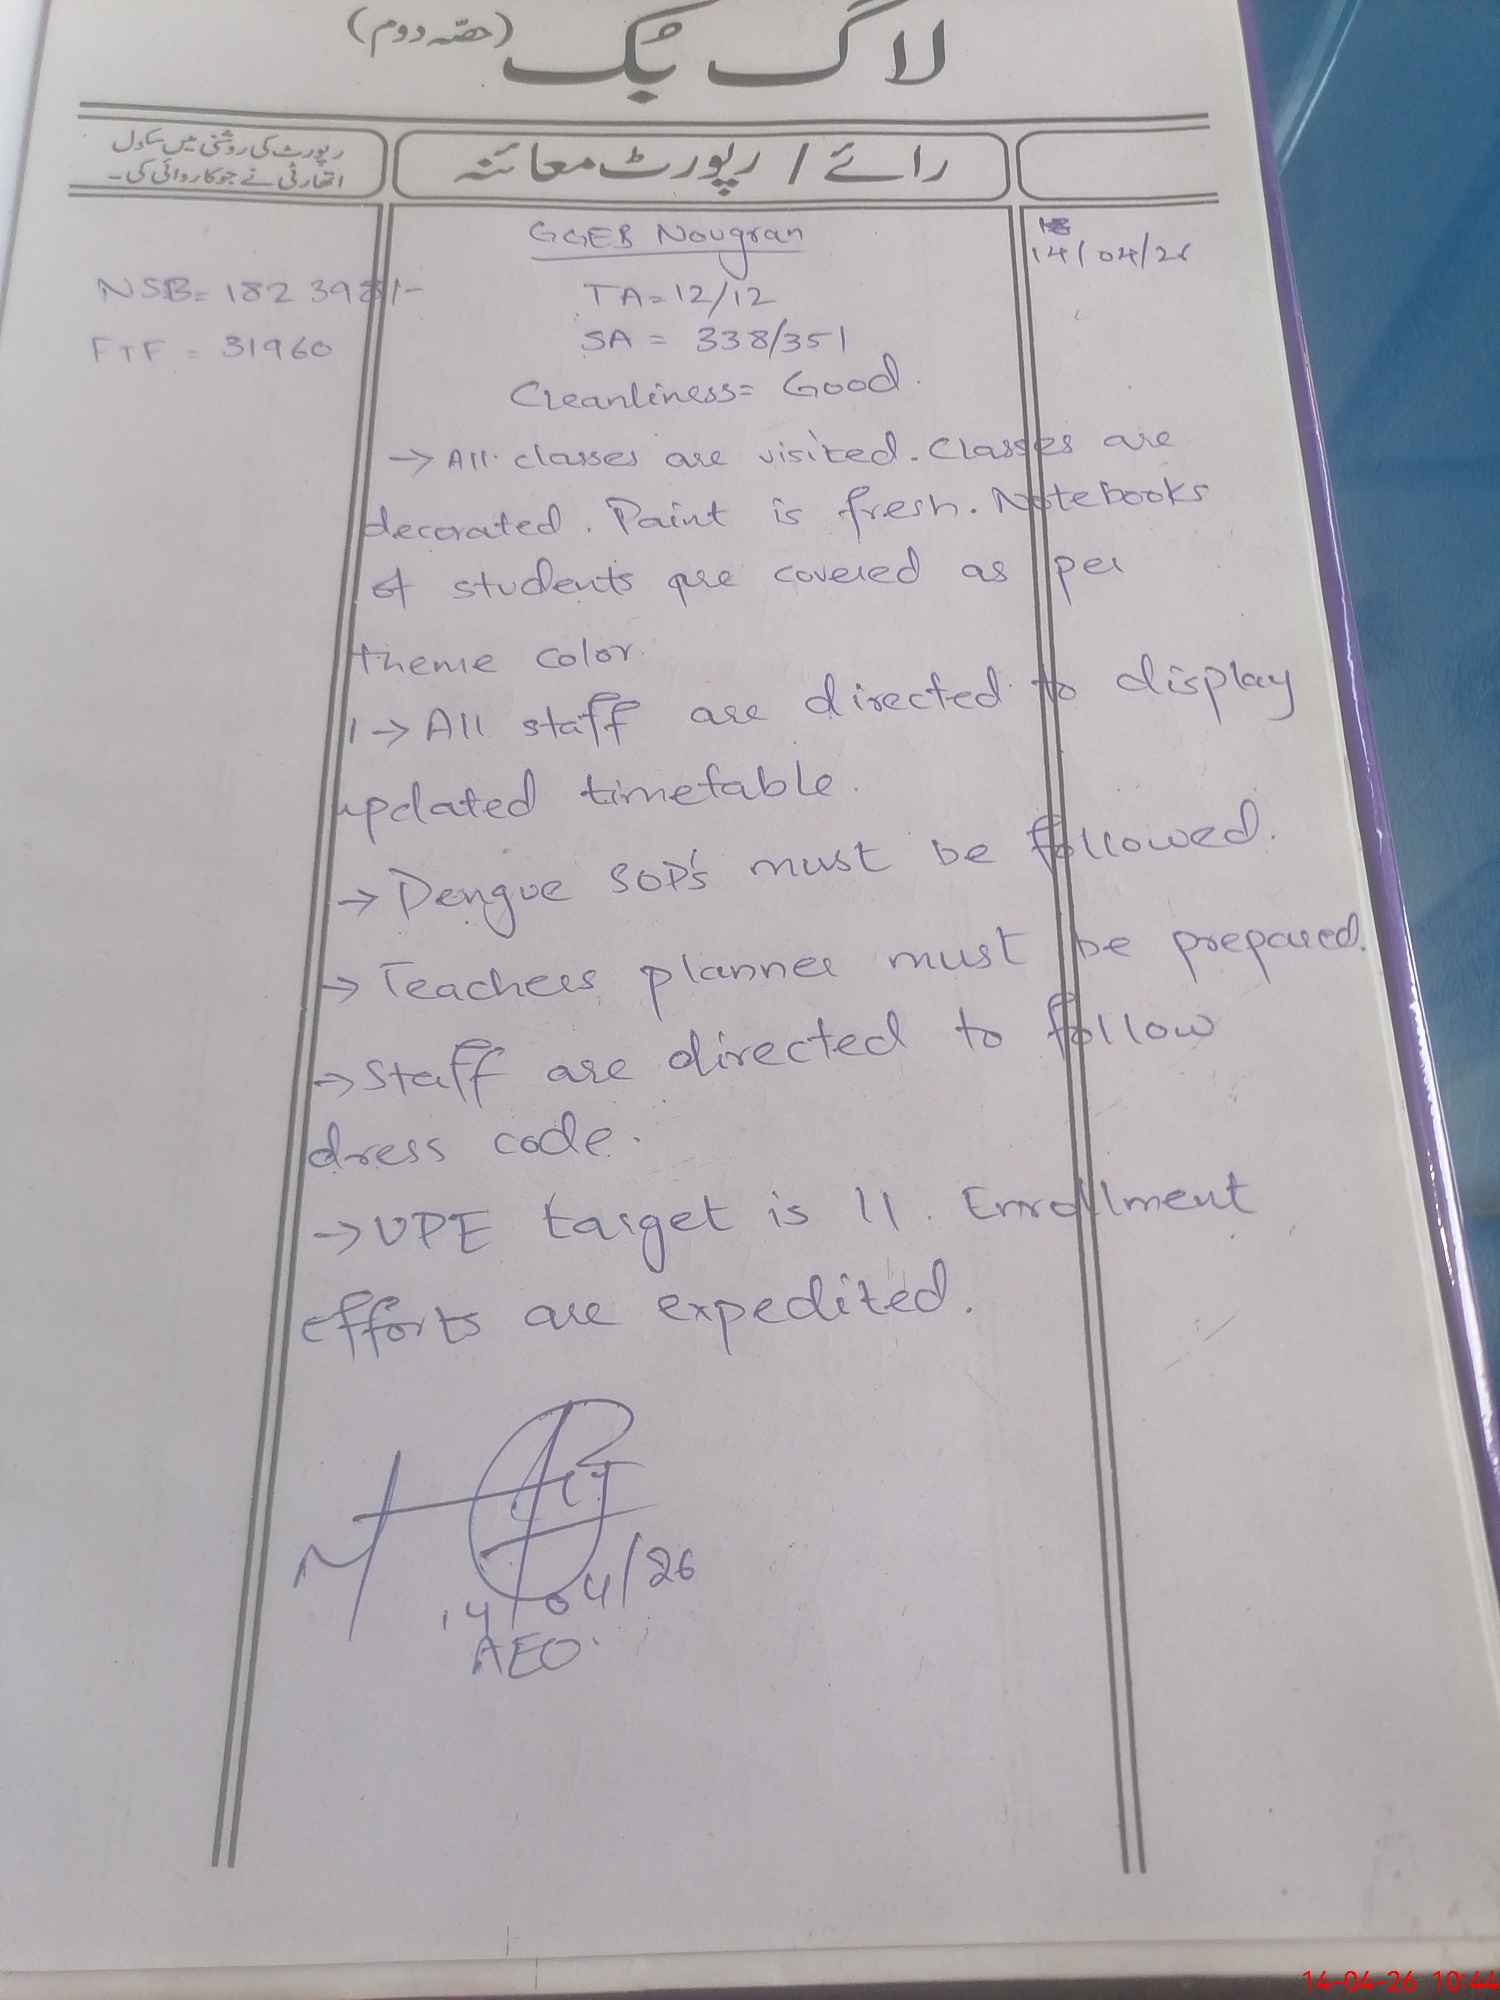 لاگ بُک (حصّہ دوم)
رائے / رپورٹ معائنہ
رپورٹ کی روشنی میں سکول
اتھارٹی نے جو کاروائی کی۔
GGES Nougran
14/04/26
NSB= 182398/-
TA= 12/12
FTF = 31960
SA = 338/351
Cleanliness= Good.
→ All classes are visited. Classes are
decorated. Paint is fresh. Notebooks
of students are covered as per
theme color.
1→ All staff are directed to display
updated timetable.
→ Dengue SOP's must be followed.
→ Teachers planner must be prepared.
→ Staff are directed to follow
dress code.
→ UPE target is 11. Enrollment
efforts are expedited.
14/04/26
AEO
14-04-26 10:44